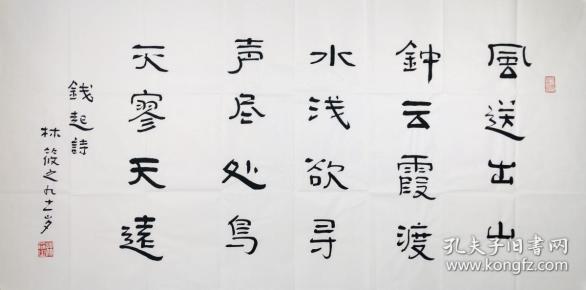 風送出山
鈡云霞渡
水浅欲寻
声尽处鸟
灭寥天遠
錢起詩
林筱之九十一岁
孔夫子旧书网